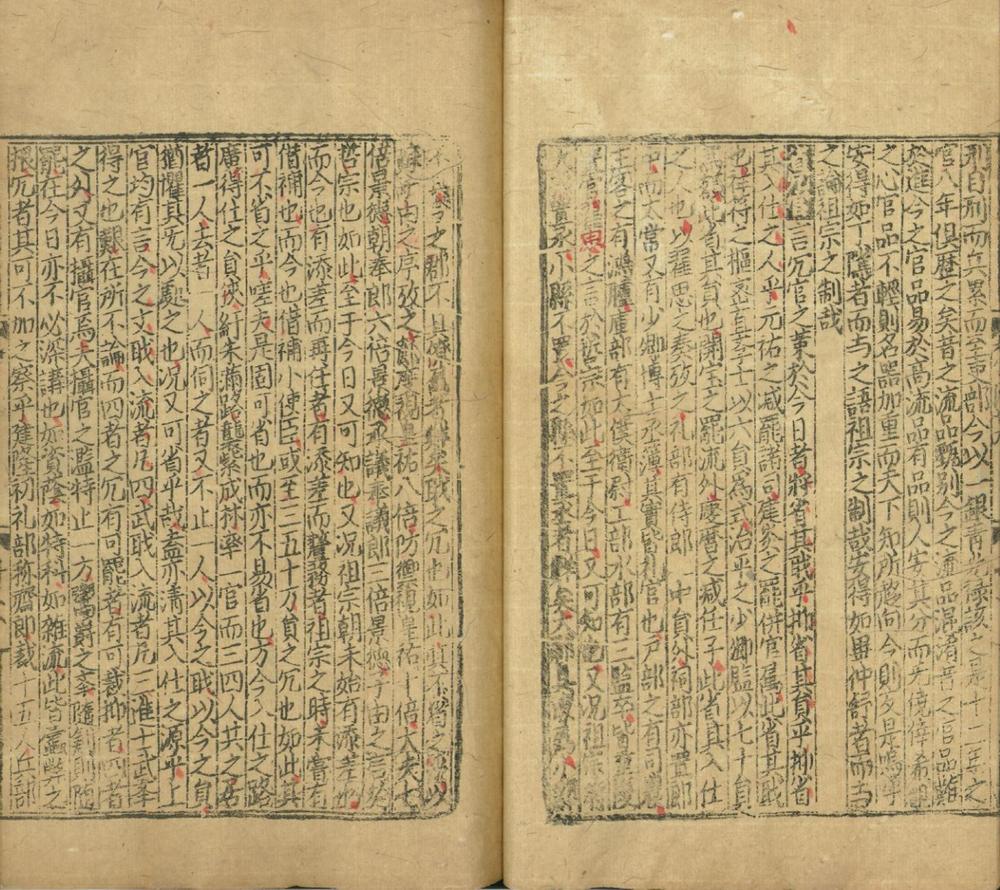 刑自刑而兵累而至吏部今以一銀青光祿該之是十二年之
官八年俱歷之矣昔之流品甄別今之流品混淆昔之官品難
於進今之官品易於高流品有品則人安其分而无僥倖希
之心官品不輕則名器加重而天下知所趍向今則及是嗚呼
安得如丁隲者而与之語祖宗之制哉安得如畢仲舒者而与
之論祖宗之制哉
言冗官之革於今日者將省其戝乎抑省其員乎抑省
其入仕之人乎元祐之減罷諸司隹参之罷併官属此省其戝
也侍從之樞密直學士以六員為式治平之少卿監以七十員
此省其員也開宝之罷流外慶曆之減任子此省其入仕
之人也以擢思之奏攷之礼部有侍郎中員外祠部亦置郎
而太常又有少卿博士丞簿其實皆礼官也戸部之有司農
主客之有鴻臚庫部有太僕衛尉工部水部有二監
思之言於哲宗如此至于今日又可知也又况祖宗
丞小縣不置今之縣不置丞者鮮矣大郡具
今之郡不具
由之序攷之節度視皇祐八倍防禦視皇祐一倍大夫七
倍景德朝奉郎六倍景德承議奉議郎二倍景德子由之言於
哲宗也如此至于今日又可知也又况祖宗朝未始有添差也
而今也有添差而再任者有添差而釐務者祖宗之時未嘗有
借補也而今也借補小使臣或至二五十万員之冗也如此其
可不省之乎噫夫是固可省也而亦不易省也方今入仕之路
廣得仕之員衆紆朱滿路襲紫成林率一官而三四人共之居
者一人去者一人而伺之者又不止一人以今之戝以今之員
猶懼其无以處之也况又可省乎哉盍亦清其入仕之原乎上
官均有言今之文戝入流者凡四武戝入流者凡三進士武舉
得之也艱在所不論而四者之冗有可罷者有可裁抑者四者
之外又有攝官焉夫攝官之濫特止一方鬻爵之弊隨
罷在今日亦不必深講也如資蔭如特科如雜流此皆蠹弊之
冗者其可不加之察乎隆初礼部称齋郎裁十五人